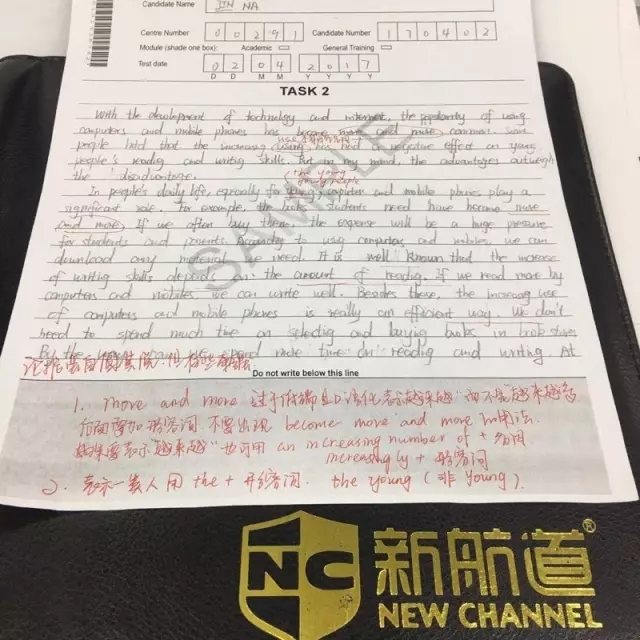 Candidate Name
NA
Centre Number 0 0 2 9 1 Candidate Number 1 7 0 4 0 2
Module (shade one box): Academic General Training
Test date 0 2 0 4 2 0 1 7
D D M M Y Y Y Y
TASK 2
With the development of technology and internet, the popularity of using
computers and mobile phones has become more and more common. Some
people hold that the increasing using has negative effect on young
people's reading and writing skills. But in my mind, the advantages outweigh
the disadvantage.
the young
young people
In people's daily life, especially for young computers and mobile phones play a
significant role. For example, the books students need have become more
and more. If we often buy them the expense will be a huge pressure
for students and parents. According to using computers and mobiles, we can
download any material we need. It is well known that the increase
of writing skills depends on the amount of reading. If we read more by
computers and mobiles we can write well. Besides these, the increasing use
of computers and mobile phones is really an efficient way. We don't
need to spend much time on selecting and buying books in book stores
By the we spend more time on reading and writing. At
Do not write below this line
1. move and more 过于 口语化 表示越来越 而不是越来越多
后面要加形容词 不要出现 become more and more 的用法
如果要表示"越来越"也可用 an increasing number of + 名词
increasingly + 形容词
2. 表示一类人用 the + 形容词. the young (非 young).
SAMPLE
NC 新航道®
NEW CHANNEL